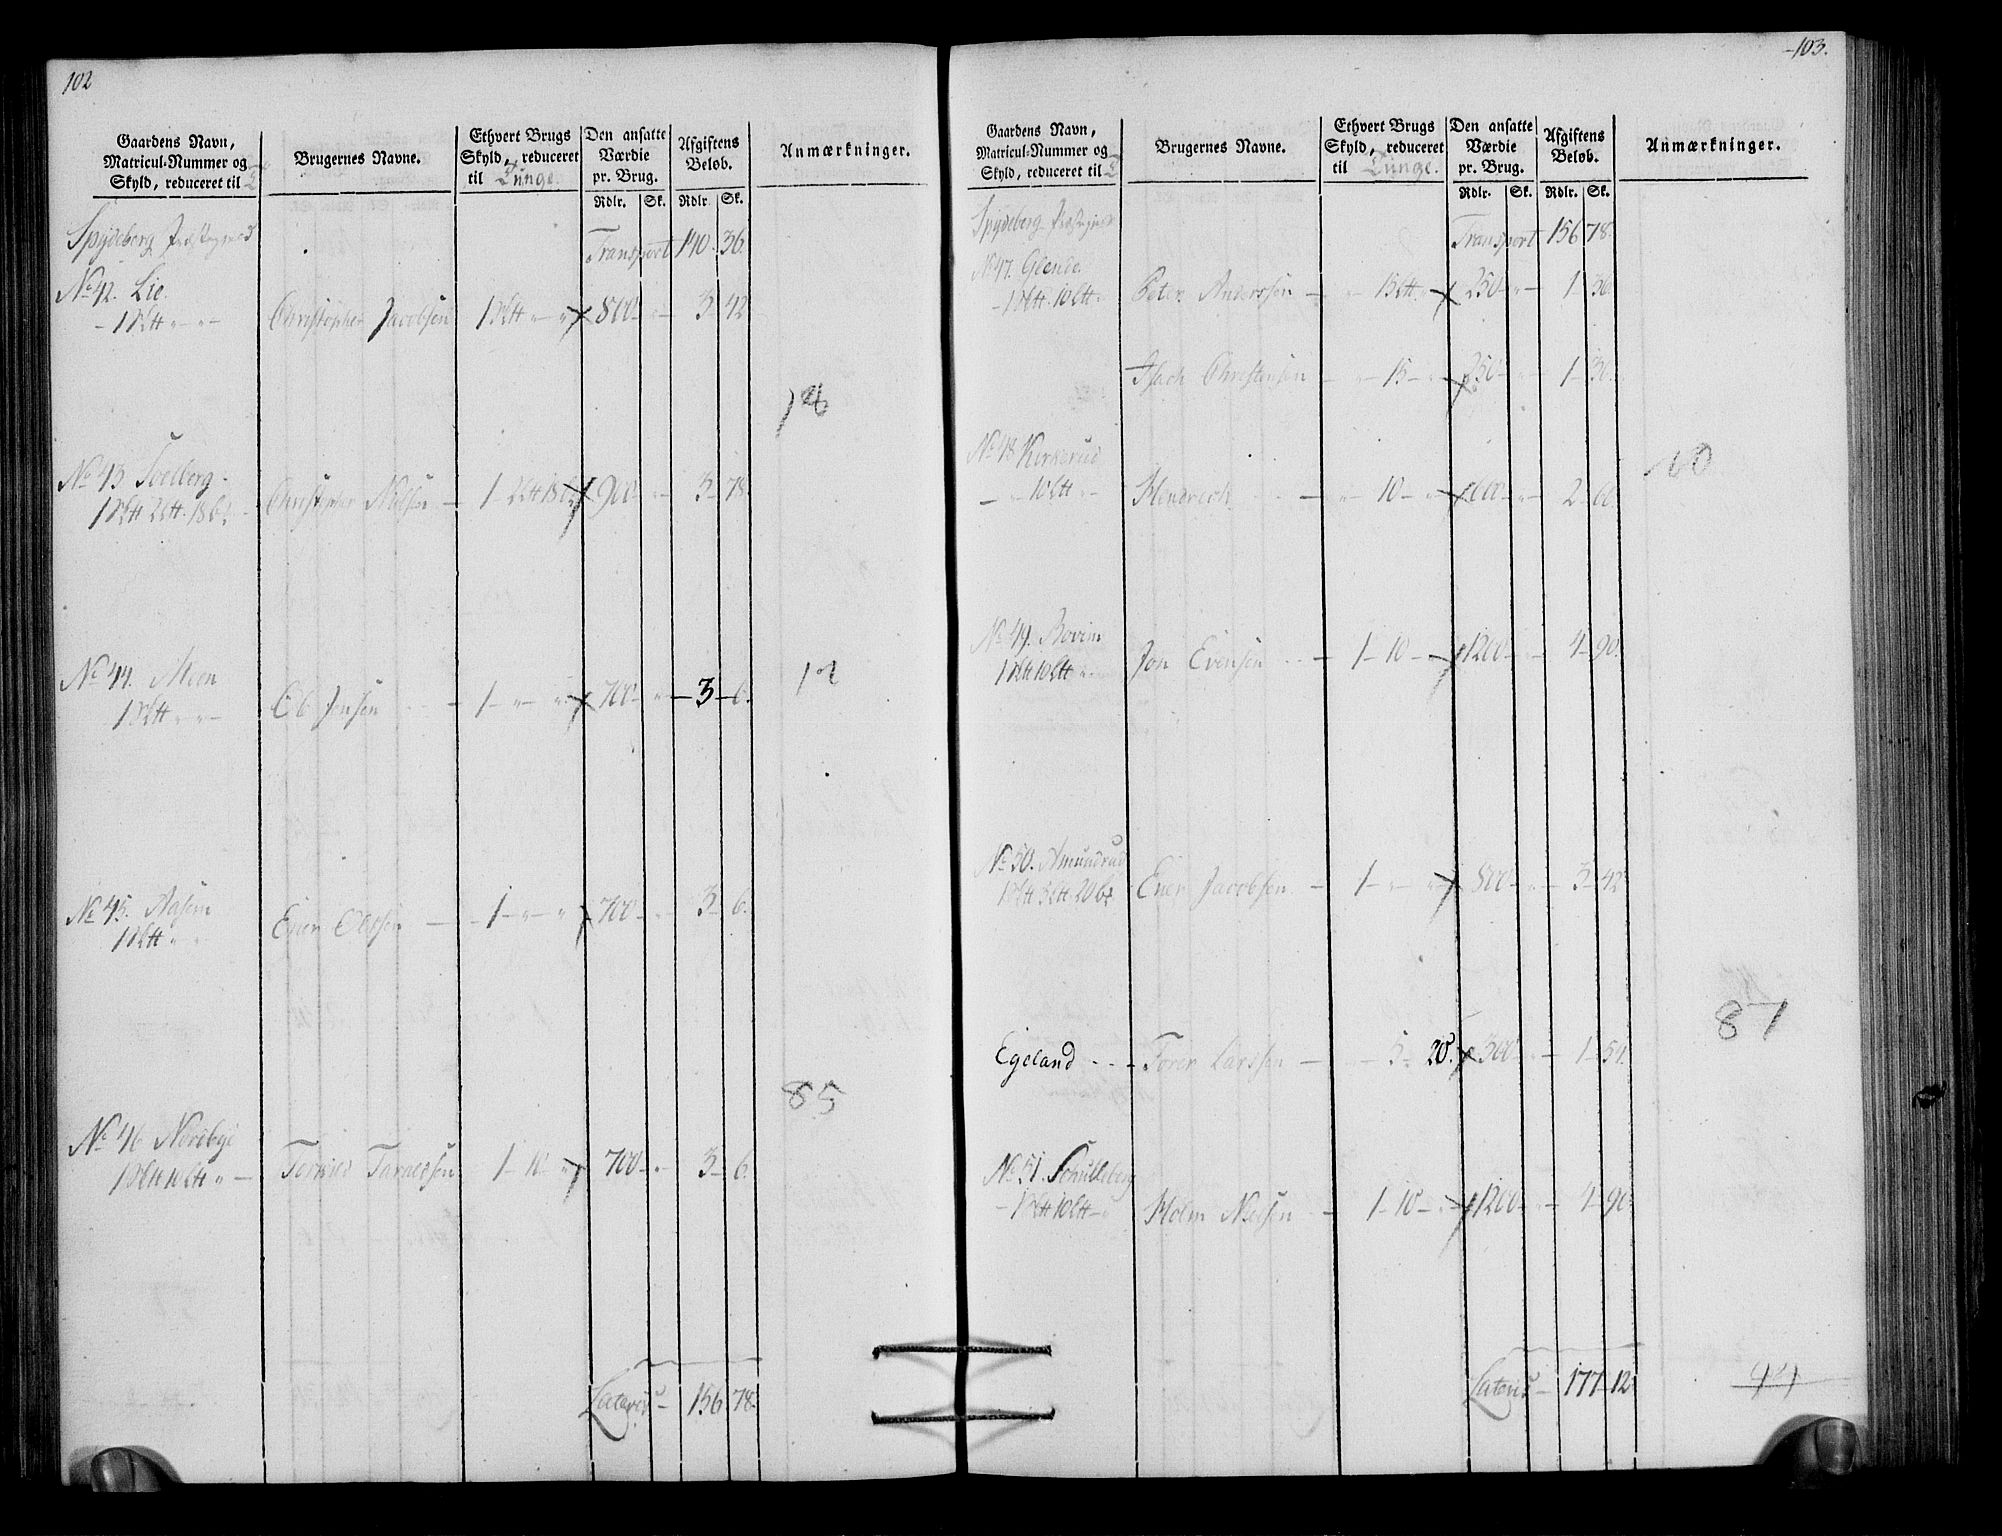 102
Gaardens Navn,
Matricul-Nummer og
Skyld, reduceret til
Brugernes Navne.
Ethvert Brugs
Skyld, reduceret
til Tunge.
Den ansatte
Værdie
pr. Brug.
Rdlr. Sk.
Afgiftens
Beløb.
Rdlr. Sk.
Anmærkninger.
Spydeberg Præstegield
Transport 140. 36.
No 42. Lie.
Christopher Jacobsen 800 3 42
18
No 43 Soelberg
Christopher Nielsen 900 3 78
No 44. Moen
Ole Jensen 1 700 3 6.
12
No 45. Aasem
Ener Olesen 1 700 3 6.
85
No 46 Nordbye
1 10 700 3 6.
Lateris 156 78.
103.
Gaardens Navn,
Matricul-Nummer og
Skyld, reduceret til
Brugernes Navne.
Ethvert Brugs
Skyld, reduceret
til Tunge.
Den ansatte
Værdie
pr. Brug.
Rdlr. Sk.
Afgiftens
Beløb.
Rdlr. Sk.
Anmærkninger.
Spydeberg
Transport 156 78.
No 47. Glende
Peter Anderssen 250 1 30
Isach Christensen 15 250 1 30.
No 48 Kirkerud
Hendrich 10 600 2 60
60
No 49. Bovim
Jon Evensen 1 10 1200 4 90.
No 50. Amundrud
Ener Jacobsen 1 800 3 42
87
Egeland Torer Larssen 5 20. 300 1 54.
No 51. Schulleberg
Holm Nielsen 1 10 1200 4 90
Lateris 177 12